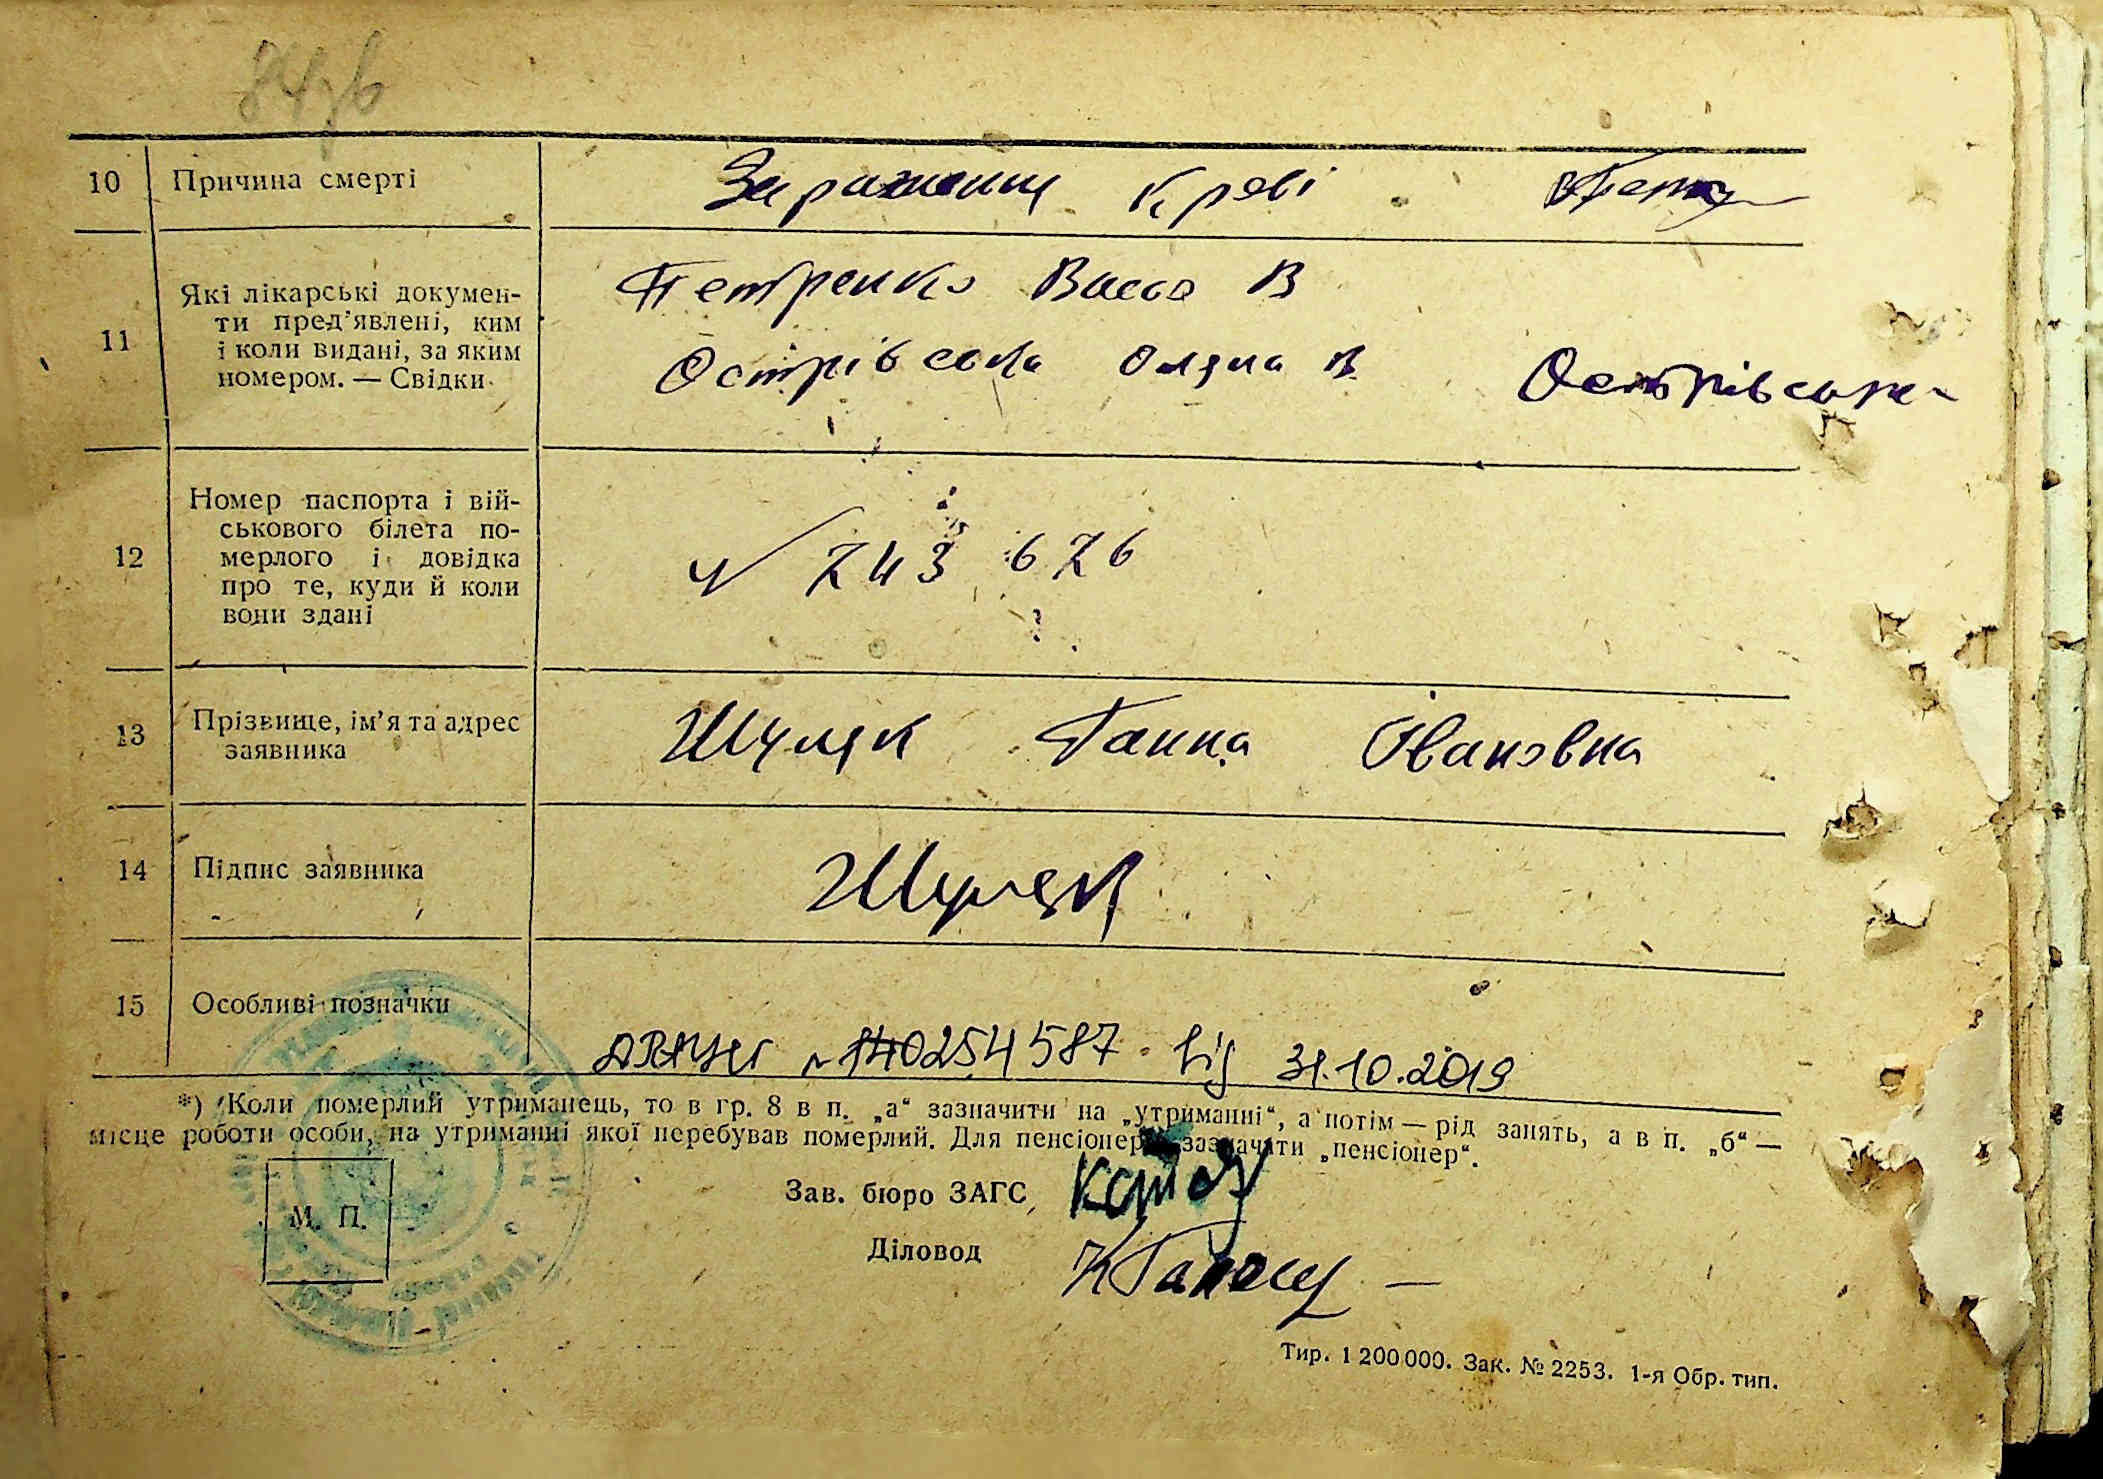 10 Причина смерті Зараження Крові
11 Які лікарські докумен-
ти пред'явлені, ким
і коли видані, за яким
номером. — Свідки
Петренко Васса В
Острівська Оляна В Острівська
12 Номер паспорта і вій-
ськового білета по-
мерлого і довідка
про те, куди й коли
вони здані
743 676
13 Прізвище, ім'я та адрес
заявника
Шуляк Ганна Івановна
14 Підпис заявника Шуляк
15 Особливі позначки
ДРАЦСГ № 140254587 від 31.10.2019
*) Коли померлий утриманець, то в гр. 8 в п. „а“ зазначити на „утриманні“, а потім — рід занять, а в п. „б“ —
місце роботи особи, на утриманні якої перебував померлий. Для пенсіонерів зазначати „пенсіонер“.
Зав. бюро ЗАГС
М. П.
Діловод
Тир. 1 200 000. Зак. № 2253. 1-я Обр. тип.